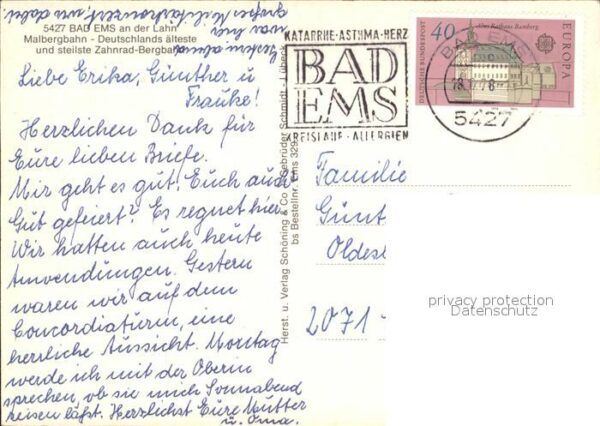 5427 BAD EMS an der Lahn
Malbergbahn - Deutschlands älteste
und steilste Zahnrad-Bergbahn
Liebe Erika, Günther u
Frauke!
Herzlichen Dank für
Eure lieben Briefe.
Mir geht es gut. Euch auch
Gut gefeiert? Es regnet hier
Wir hatten auch heute
Anwendungen. Gestern
waren wir auf dem
Concordiaturm, eine
herrliche Aussicht. Montag
werde ich mit der Oberin
sprechen, ob sie mich Sonnabend
reisen läßt. Herzlichst Eure Mutter
u. Oma.
Gestern abend
war hier
großes Militärkonzert, war dabei.
Herst. u. Verlag Schöning & Co + Gebrüder Schmidt - Lübeck
bs Bestellnr. Ems 329
KATARRHE-ASTHMA-HERZ
BAD
EMS
KREISLAUF-ALLERGIEN
40
Altes Rathaus Bamberg
DEUTSCHE BUNDESPOST
EUROPA
BAD EMS
5427
Familie
Günt
Oldes
2071
privacy protection
Datenschutz